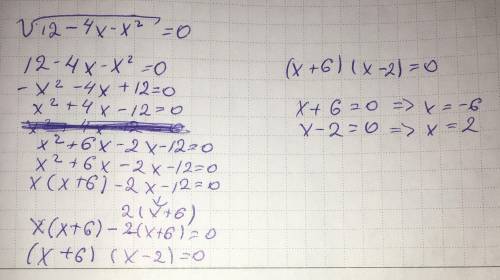 √12-4x-x² =0
12-4x-x²=0
-x²-4x+12=0
x²+4x-12=0
x²+6x-2x-12=0
x²+6x-2x-12=0
x(x+6)-2x-12=0
2(x+6)
x(x+6)-2(x+6)=0
(x+6) (x-2)=0
(x+6) (x-2)=0
x+6=0 => x=-6
x-2=0 => x=2